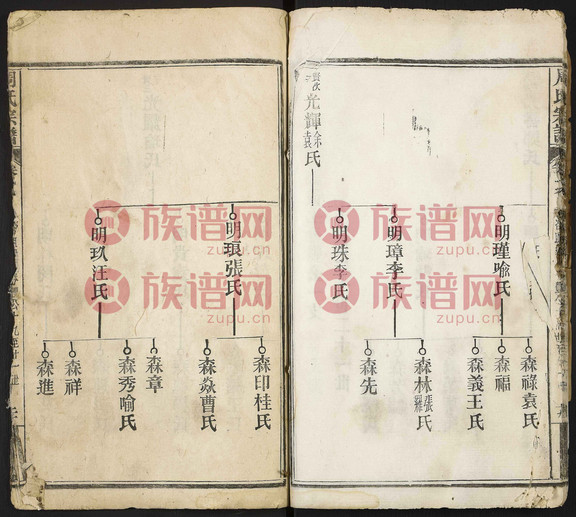 周氏宗譜
光輝徐袁氏
明瑾喻氏
明璋李氏
明珠李氏
明琅張氏
明玖汪氏
森祿袁氏
森福
森義王氏
森林張羅氏
森先
森印桂氏
森焱曹氏
森章
森秀喻氏
森祥
森進
周氏宗譜
族谱网
zupu.cn
族谱网
zupu.cn
族谱网
zupu.cn
族谱网
zupu.cn